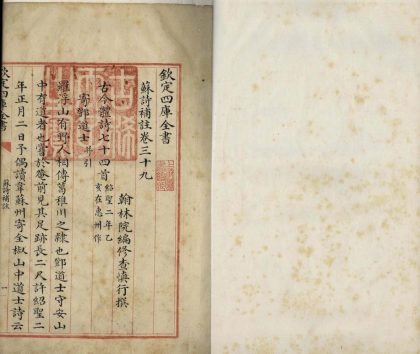 欽定四庫全書
蘇詩補註卷三十九
翰林院編修查慎行撰
古今體詩七十四首
紹聖二年乙
亥在惠州作
寄鄧道士
并引
羅浮山有野人相傳葛稚川之隸也鄧道士守安山
中有道者也嘗於菴前見其足跡長二尺許紹聖二
年正月二日予偶讀韋蘇州寄全椒山中道士詩云
欽定四庫全書
蘇詩補註
一